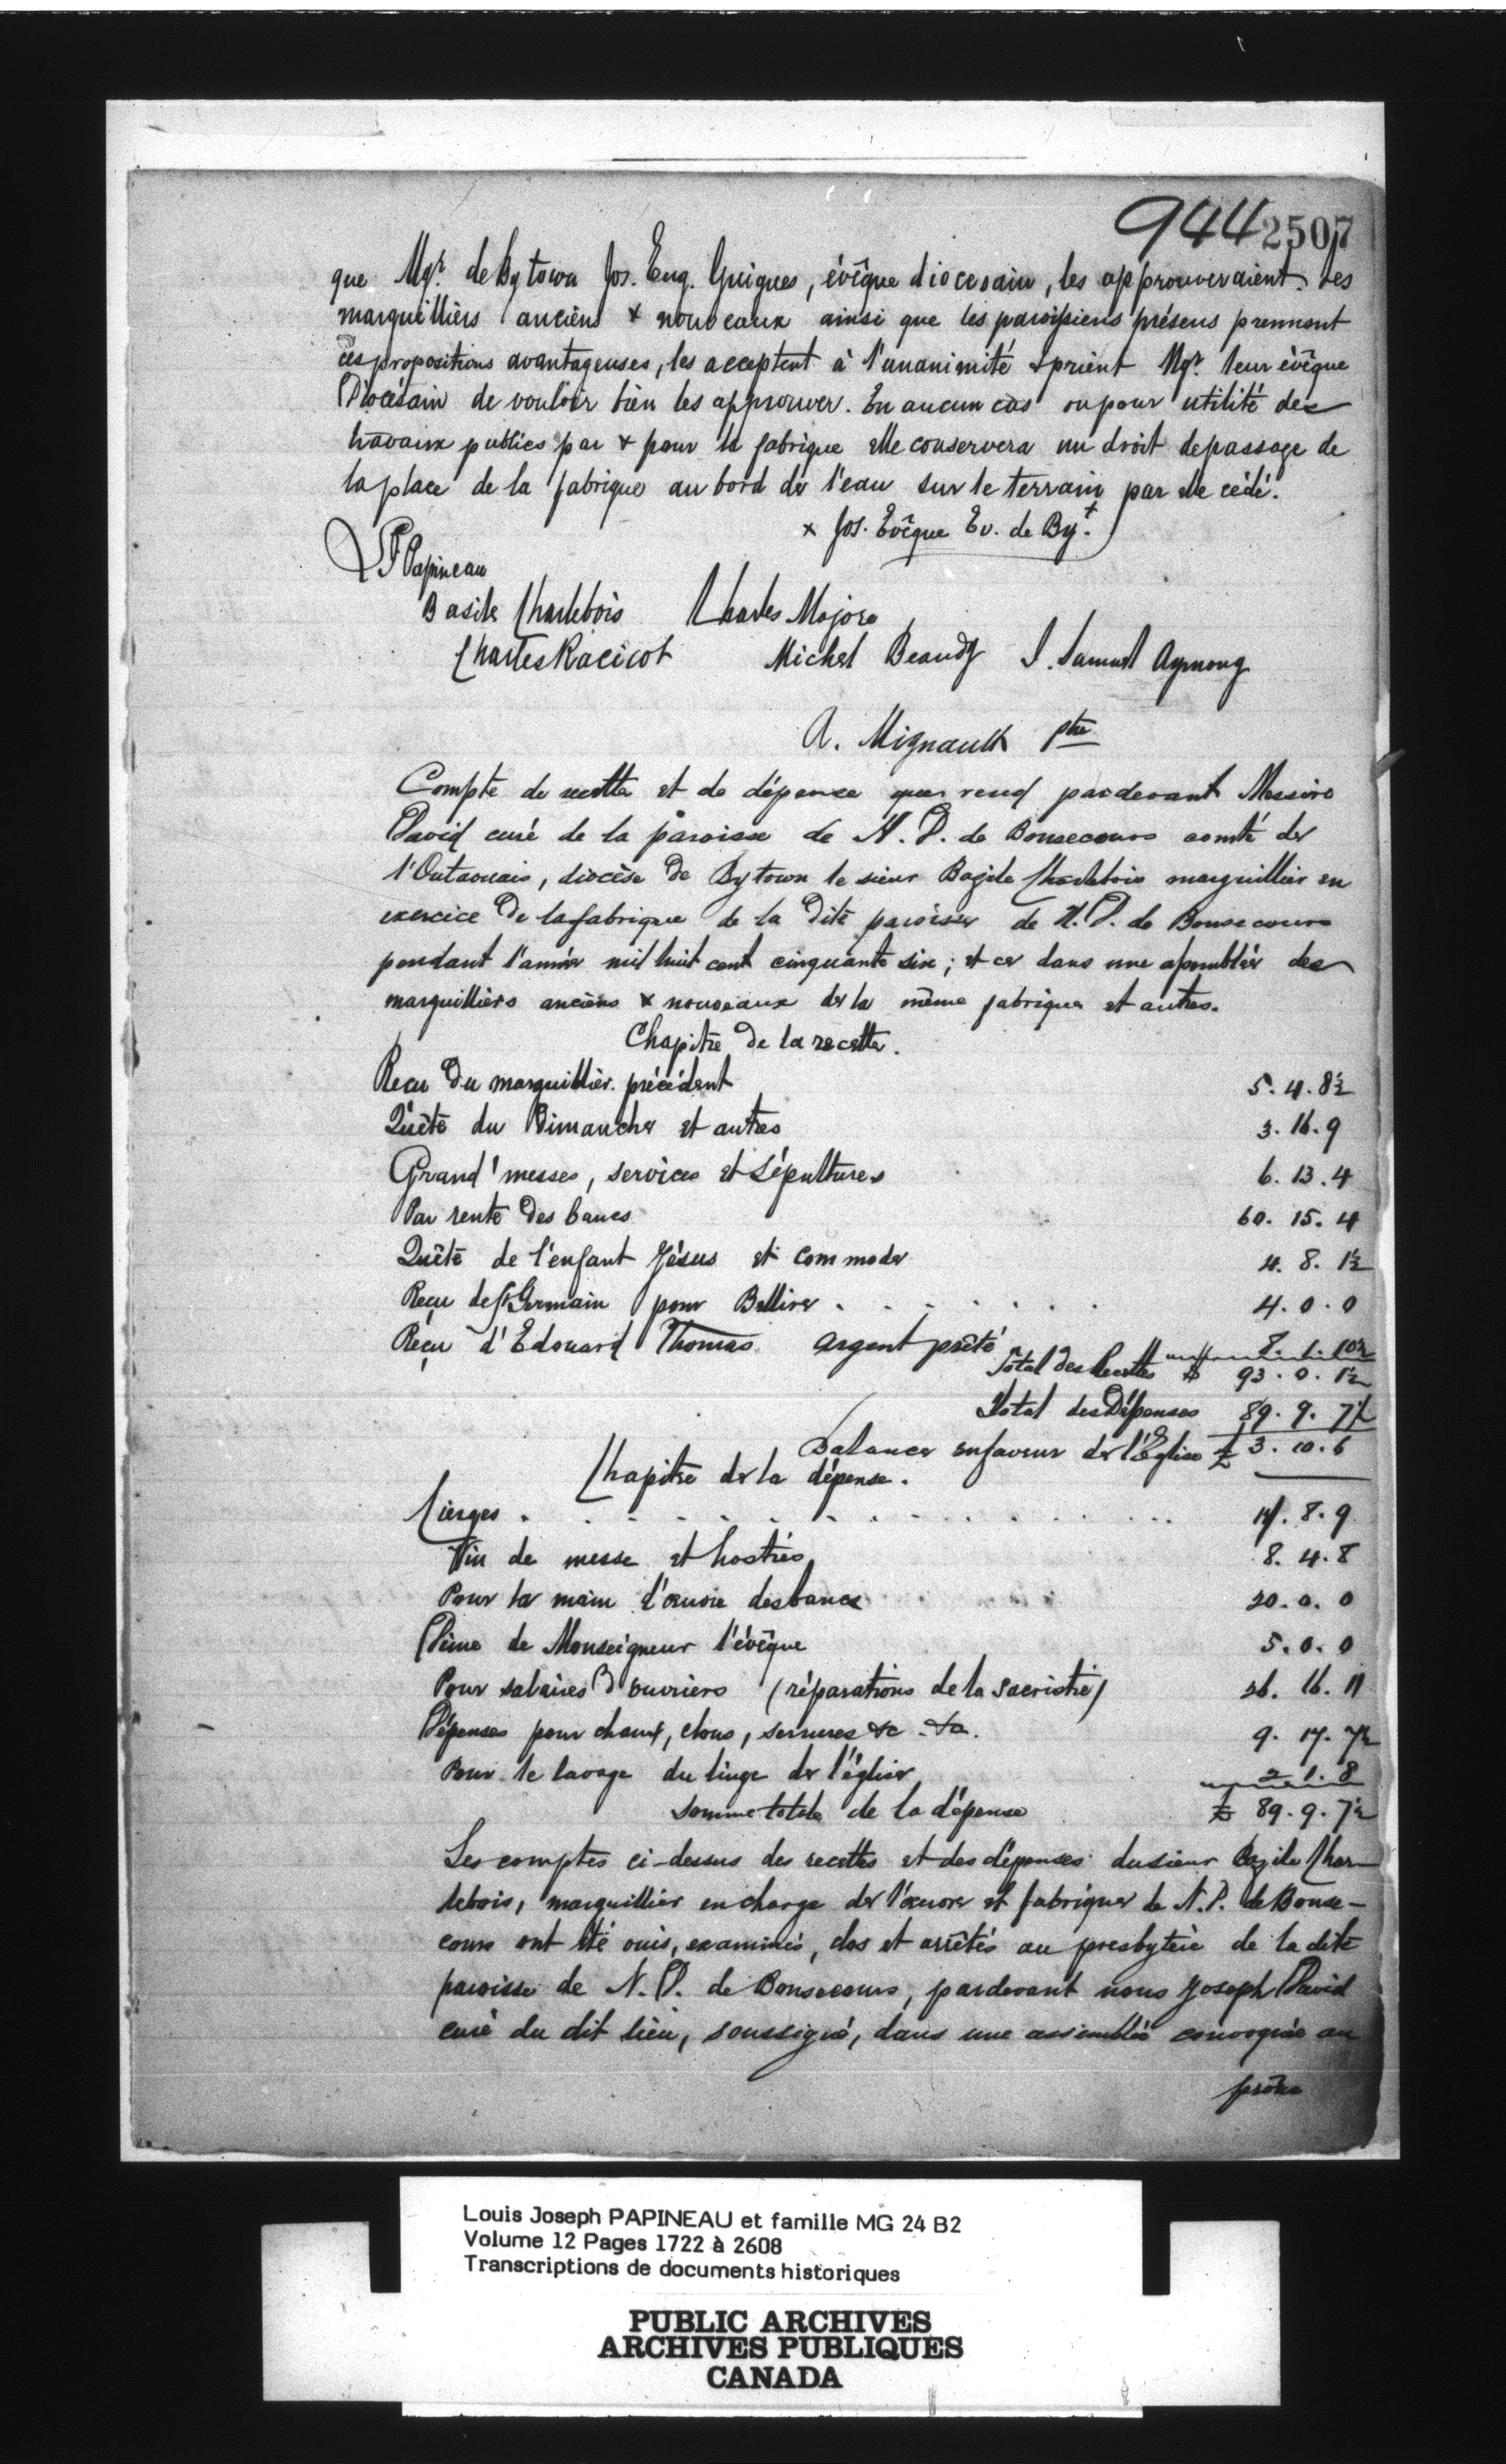 944 2507
que Mgr. de Bytown Jos. Eug. Guigues, évêque diocesain, les approuveraient. Les
marguilliers anciens & nouveaux ainsi que les paroissiens présens prennent
ces propositions avantageuses, les acceptent à l'unanimité & prient Mgr. leur évêque
Diocésain de vouloir bien les approuver. En aucun cas ou pour utilité des
travaux publics par & pour la fabrique elle conservera un droit de passage de
la place de la fabrique au bord de l'eau sur le terrain par elle cédé.
x Jos. Evêque Ev. de By. +
LJ Papineau
Basile Charlebois Charles Major
Charles Racicot Michel Beaudy J. Samuel Aymong
A. Mignault Ptre
Compte de recette et de dépense que rend pardevant Messire
David curé de la paroisse de N. D. de Bonsecours comté de
l'Outaouais, diocèse de Bytown le sieur Bazile Charlebois marguillier en
exercice de la fabrique de la dite paroisse de N. D. de Bonsecours
pendant l'année mil huit cent cinquante six; et ce dans une assemblée des
marguilliers anciens & nouveaux de la même fabrique et autres.
Chapitre de la recette.
Reçu du marguillier précédent 5. 4. 8½
Quête du Dimanche et autres 3. 16. 9
Grand'messes, services et sépultures 6. 13. 4
Par rente des bancs 60. 15. 4
Quête de l'enfant Jésus et commode 4. 8. 1½
Reçu de St Germain pour Bellive . . . . . . . 4. 0. 0
Reçu d'Edouard Thomas argent prêté 8. 1. 10½
Total des Recettes 93. 0. 1½
Total des Dépenses 89. 9. 7½
Balance en faveur de l'Eglise £ 3. 10. 6
Chapitre de la dépense.
Cierges . . . . . . . . . . . . . . . 17. 8. 9
Vin de messe et hosties 8. 4. 8
Pour la main d'œuvre des bancs 20. 0. 0
Dîme de Monseigneur l'évêque 5. 0. 0
Pour salaires d'ouvriers (réparations de la sacristie) 26. 16. 11
Dépenses pour chaux, clous, serrures &c. &c. 9. 17. 7½
Pour le lavage du linge de l'église 2. 1. 8
Somme totale de la dépense £ 89. 9. 7½
Les comptes ci-dessus des recettes et des dépenses du sieur Bazile Char-
lebois, marguillier en charge de l'œuvre et fabrique de N. D. de Bonse-
cours ont été ouis, examinés, clos et arrêtés au presbytère de la dite
paroisse de N. D. de Bonsecours, pardevant nous Joseph David
curé du dit lieu, soussigné, dans une assemblée convoquée au
prône
Louis Joseph PAPINEAU et famille MG 24 B2
Volume 12 Pages 1722 à 2608
Transcriptions de documents historiques
PUBLIC ARCHIVES
ARCHIVES PUBLIQUES
CANADA